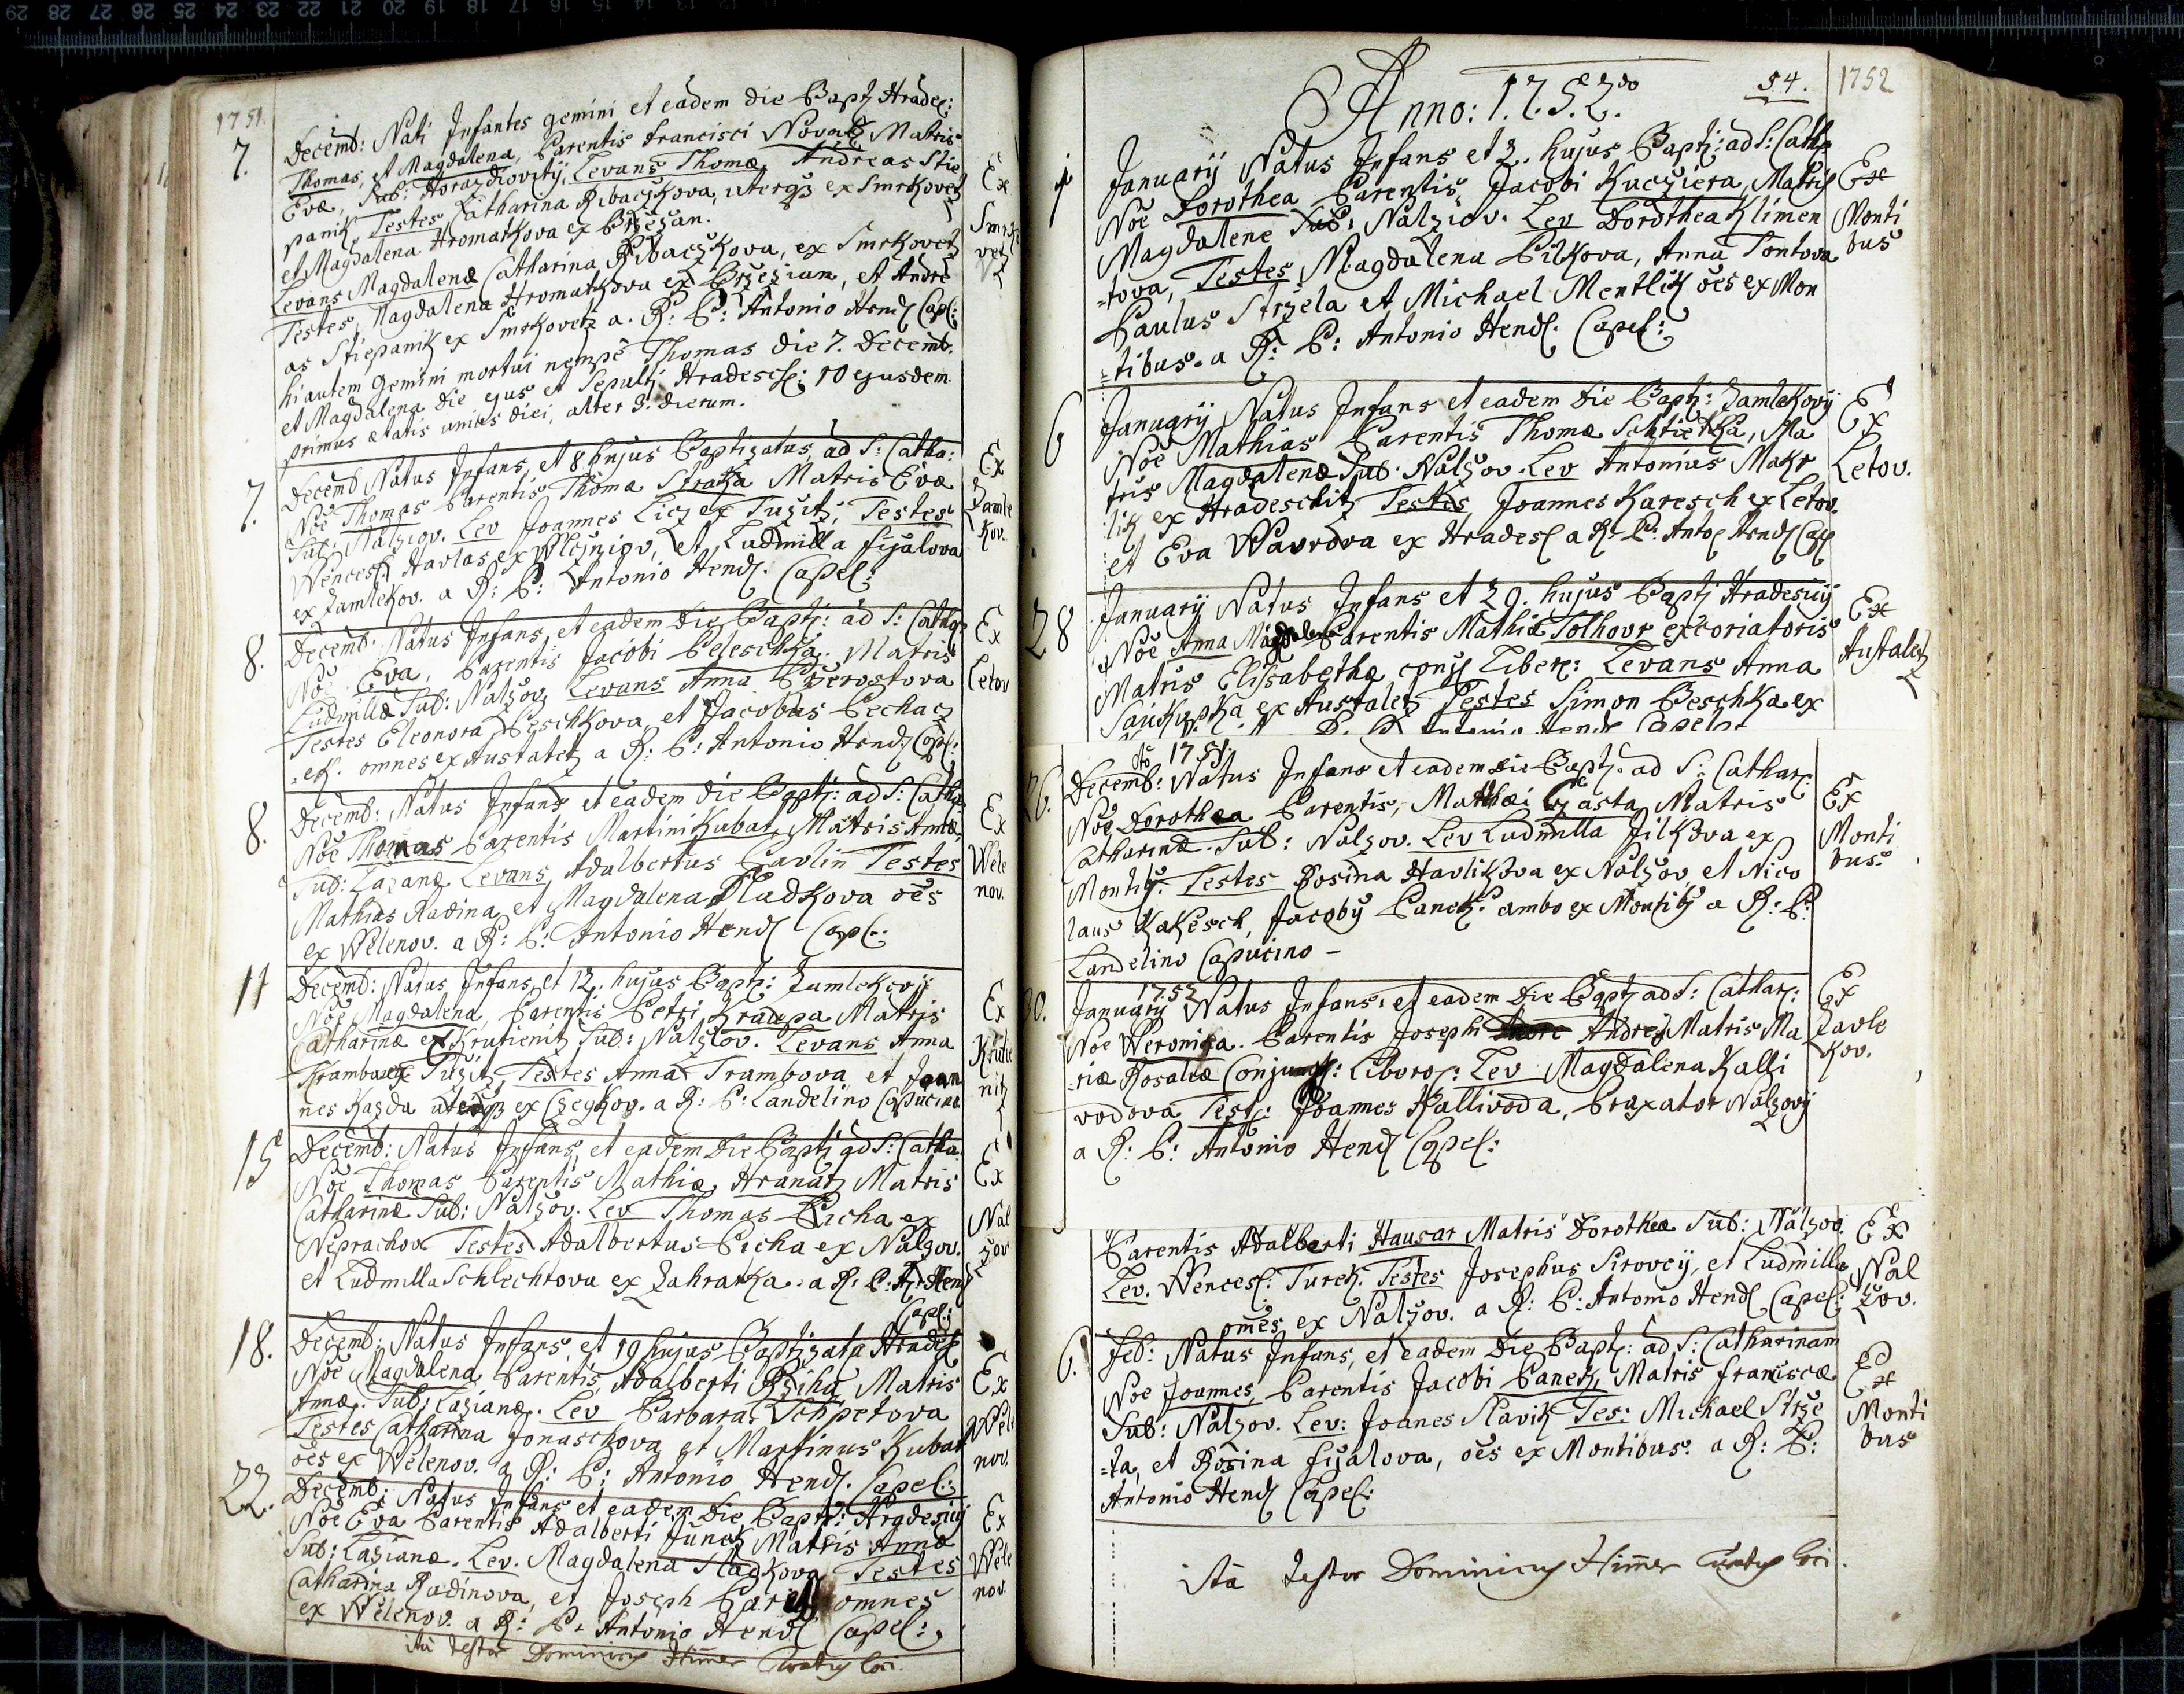 1751.
7. Decemb: Nati Infantes gemini et eadem die Bapt: Hradeſ:
Thomas, et Magdalena, Parentis Francisci Novak, Matris
Evæ, Sub: Horazdiovity, Levans Thomæ, Andreas Stie
panik, Testes Catharina Ribaczkova, uterq3 ex Smrkovetz
et Magdalena Hromatkova ex Brzezan.
Levans Magdalenæ Catharina Ribaczkova, ex Smrkovetz
Testes, Magdalena Hromatkova ex Brzezian, et Andre
as Stiepanik ex Smrkovetz a. R: P: Antonio Hendſ Capl:
hi autem gemini mortui nempè Thomas die 7. Decemb.
et Magdalena die ejus et Sepulti Hradeſcſ: 10 ejusdem
primus ætatis unius diei, alter 3. dierum.
Ex
Smrko
vetz
7. Decemb Natus Infans, et 8 hujus Baptizatus, ad S: Catha:
Noe Thomas Parentis Thomæ Straka Matris Evæ
Sub: Nalziov. Lev Joannes Licz ex Tuzitz, Testes
Wenceſ: Havlas ex Wlczniov, et Ludmilla Fijalova
ex Zamlekov. a R: P: Antonio Hendſ. Capel:
Ex
Zamle
kov.
8. Decemb: Natus Infans, et eadem die Bapt: ad S: Catha
No Eva, Parentis Jacobi Peleschka. Matris
Ludmillæ Sub: Nalzov, Levans Anna Pverostova
Testes Eleonora Peschkova, et Jacobus Pechacz
ek. omnes ex Austaletz a R: P: Antonio Hend: Capl:
Ex
Letov
8. Decemb: Natus Infans, et eadem die Bapt: ad S: Catha
Noe Thomas Parentis Martini Kubat, Matris Annæ,
Sub: Lazanz Levans Adalbertus Pavlin Testes
Mathias Radina, et Magdalena Sladkova oes
ex Welenov. a R: P: Antonio Hendſ Capl:
Ex
Wele
nov.
11 Decemb: Natus Infans, et 12. hujus Bapt: Zamlekovÿ
Noe Magdalena, Parentis Petri Kraupa Matris
Catharinæ ex Krutienitz Sub: Nalziov. Levans Anna
Trambova ex Tuzitz, Testes Anna Trambova et Joan
nes Kazda uterq3 ex Czegkov. a R: P: Landelino Capucino
Ex
Krutie
nitz
15 Decemb: Natus Infans, et eadem Die Bapti ad S: Catha.
Noe Thomas Parentis Mathiæ Hranatz Matris
Catharinæ Sub: Nalzov. Lev Thomas Picha ex
Neprachov Testes Adalbertus Picha ex Nalzov.
et Ludmilla Schlechtova ex Zahratka. a R: P: A: Hendſ
Capl:
Ex
Nal
zov
18. Decemb: Natus Infans, et 19 hujus Baptizata Hradeſ
Noe Magdalena Parentis Adalberti Rziha Matris
Annæ. Sub: Lazianæ. Lev Barbara Schpetova
Testes Catharina Jonaschova et Martinus Kubat
oes ex Welenov. a R: P: Antonio Hendſ. Capel:
Ex
Wele
nov.
22. Decemb: Natus Infans et eadem Die Bapt: Hradesicÿ
Noe Eva Parentis Adalberti Junek Matris Annæ
Sub: Lazianæ. Lev. Magdalena Sladkova Testes
Catharina Radinova, et Joseph omnes
ex Welenov. a R: P: Antonio Hendſ Capel:
Ex
Wele
nov.
ita testor Dominicus Himer Curatus loci.
Anno: 1.7.5.2do
54.
1752
1 Januarÿ Natus Infans et 2. hujus Bapt: ad S: Catha
Noe Dorothea Parentis Jacobi Kucziera, Matris
Magdalene Sub: Nalziov. Lev Dorothea Klimen
=tova, Testes Magdalena Pilkova, Anna Tontova
Paulus Strzela et Michael Mentlik oes ex Mon
=tibus. a R: P: Antonio Hendſ. Capel:
Ex
Monti
bus
6 Januarÿ Natus Infans et eadem Die Bapt: Zamlekovÿ
Noe Mathias Parentis Thomæ Schtietka, Ma
tris Magdalenæ Sub: Nalzov. Lev Antonius Makr
lik ex Hradeschitz Testes Joannes Karesch ex Letov.
et Eva Wavrova ex Hradeſ a R: P: Anto Hendſ Capl
Ex
Letov.
28 Januarÿ Natus Infans et 29. hujus Bapt: Hradesicÿ
Noe Anna Magdalena Parentis Mathiæ Tolhovr excoriatoris
Matris Elisabethæ conjſ Libere: Levans Anna
ex Austaletz Testes Simon Peschka ex
P: Antonio Hendſ Capel:
Ex
Austaletz
26. Decemb: 1751. Natus Infans et eadem die Bapt: ad S: Cathar:
Noe Dorothea Parentis, Mathæi Gasta Matris
Catharinæ. Sub: Nalzov. Lev Ludmilla Jilkova ex
Montib: Testes Rosina Havlikova ex Nalzov et Nico
laus Kakesch, Jacobÿ Panek: ambo ex Montib: a R: P:
Landelino Capucino –
Ex
Monti
bus:
30. January 1752 Natus Infans, et eadem Die Bapt: ad S: Cathar:
Noe Weronika. Parentis Josephi Andre Matris Ma
=riæ Rosaliæ Conjung: Liboro: Lev Magdalena Kalli
vodova Test: Joannes Kallivoda, Braxator Nalzovÿ
a R: P: Antonio Hendſ Capel:
Ex
Zavle
kov.
Parentis Adalberti Hausar Matris Dorotheæ Sub: Nalzov.
Lev. Wenceſ: Turek. Testes Josephus Sirovey, et Ludmilla
omes ex Nalzov. a R: P: Antonio Hendſ Capel:
Ex
Nal
zov.
6. Feb: Natus Infans, et eadem Die Bapt: ad S: Catharinam
Noe Joannes, Parentis Jacobi Panek, Matris Franciscæ
Sub: Nalzov. Lev: Joanes Slavik Tes: Michael Strze
=la, et Rosina Fijalova, oes ex Montibus: a R: P:
Antonio Hendſ Capel:
Ex
Monti
bus
ita testor Dominicus Himer Curatus loci.